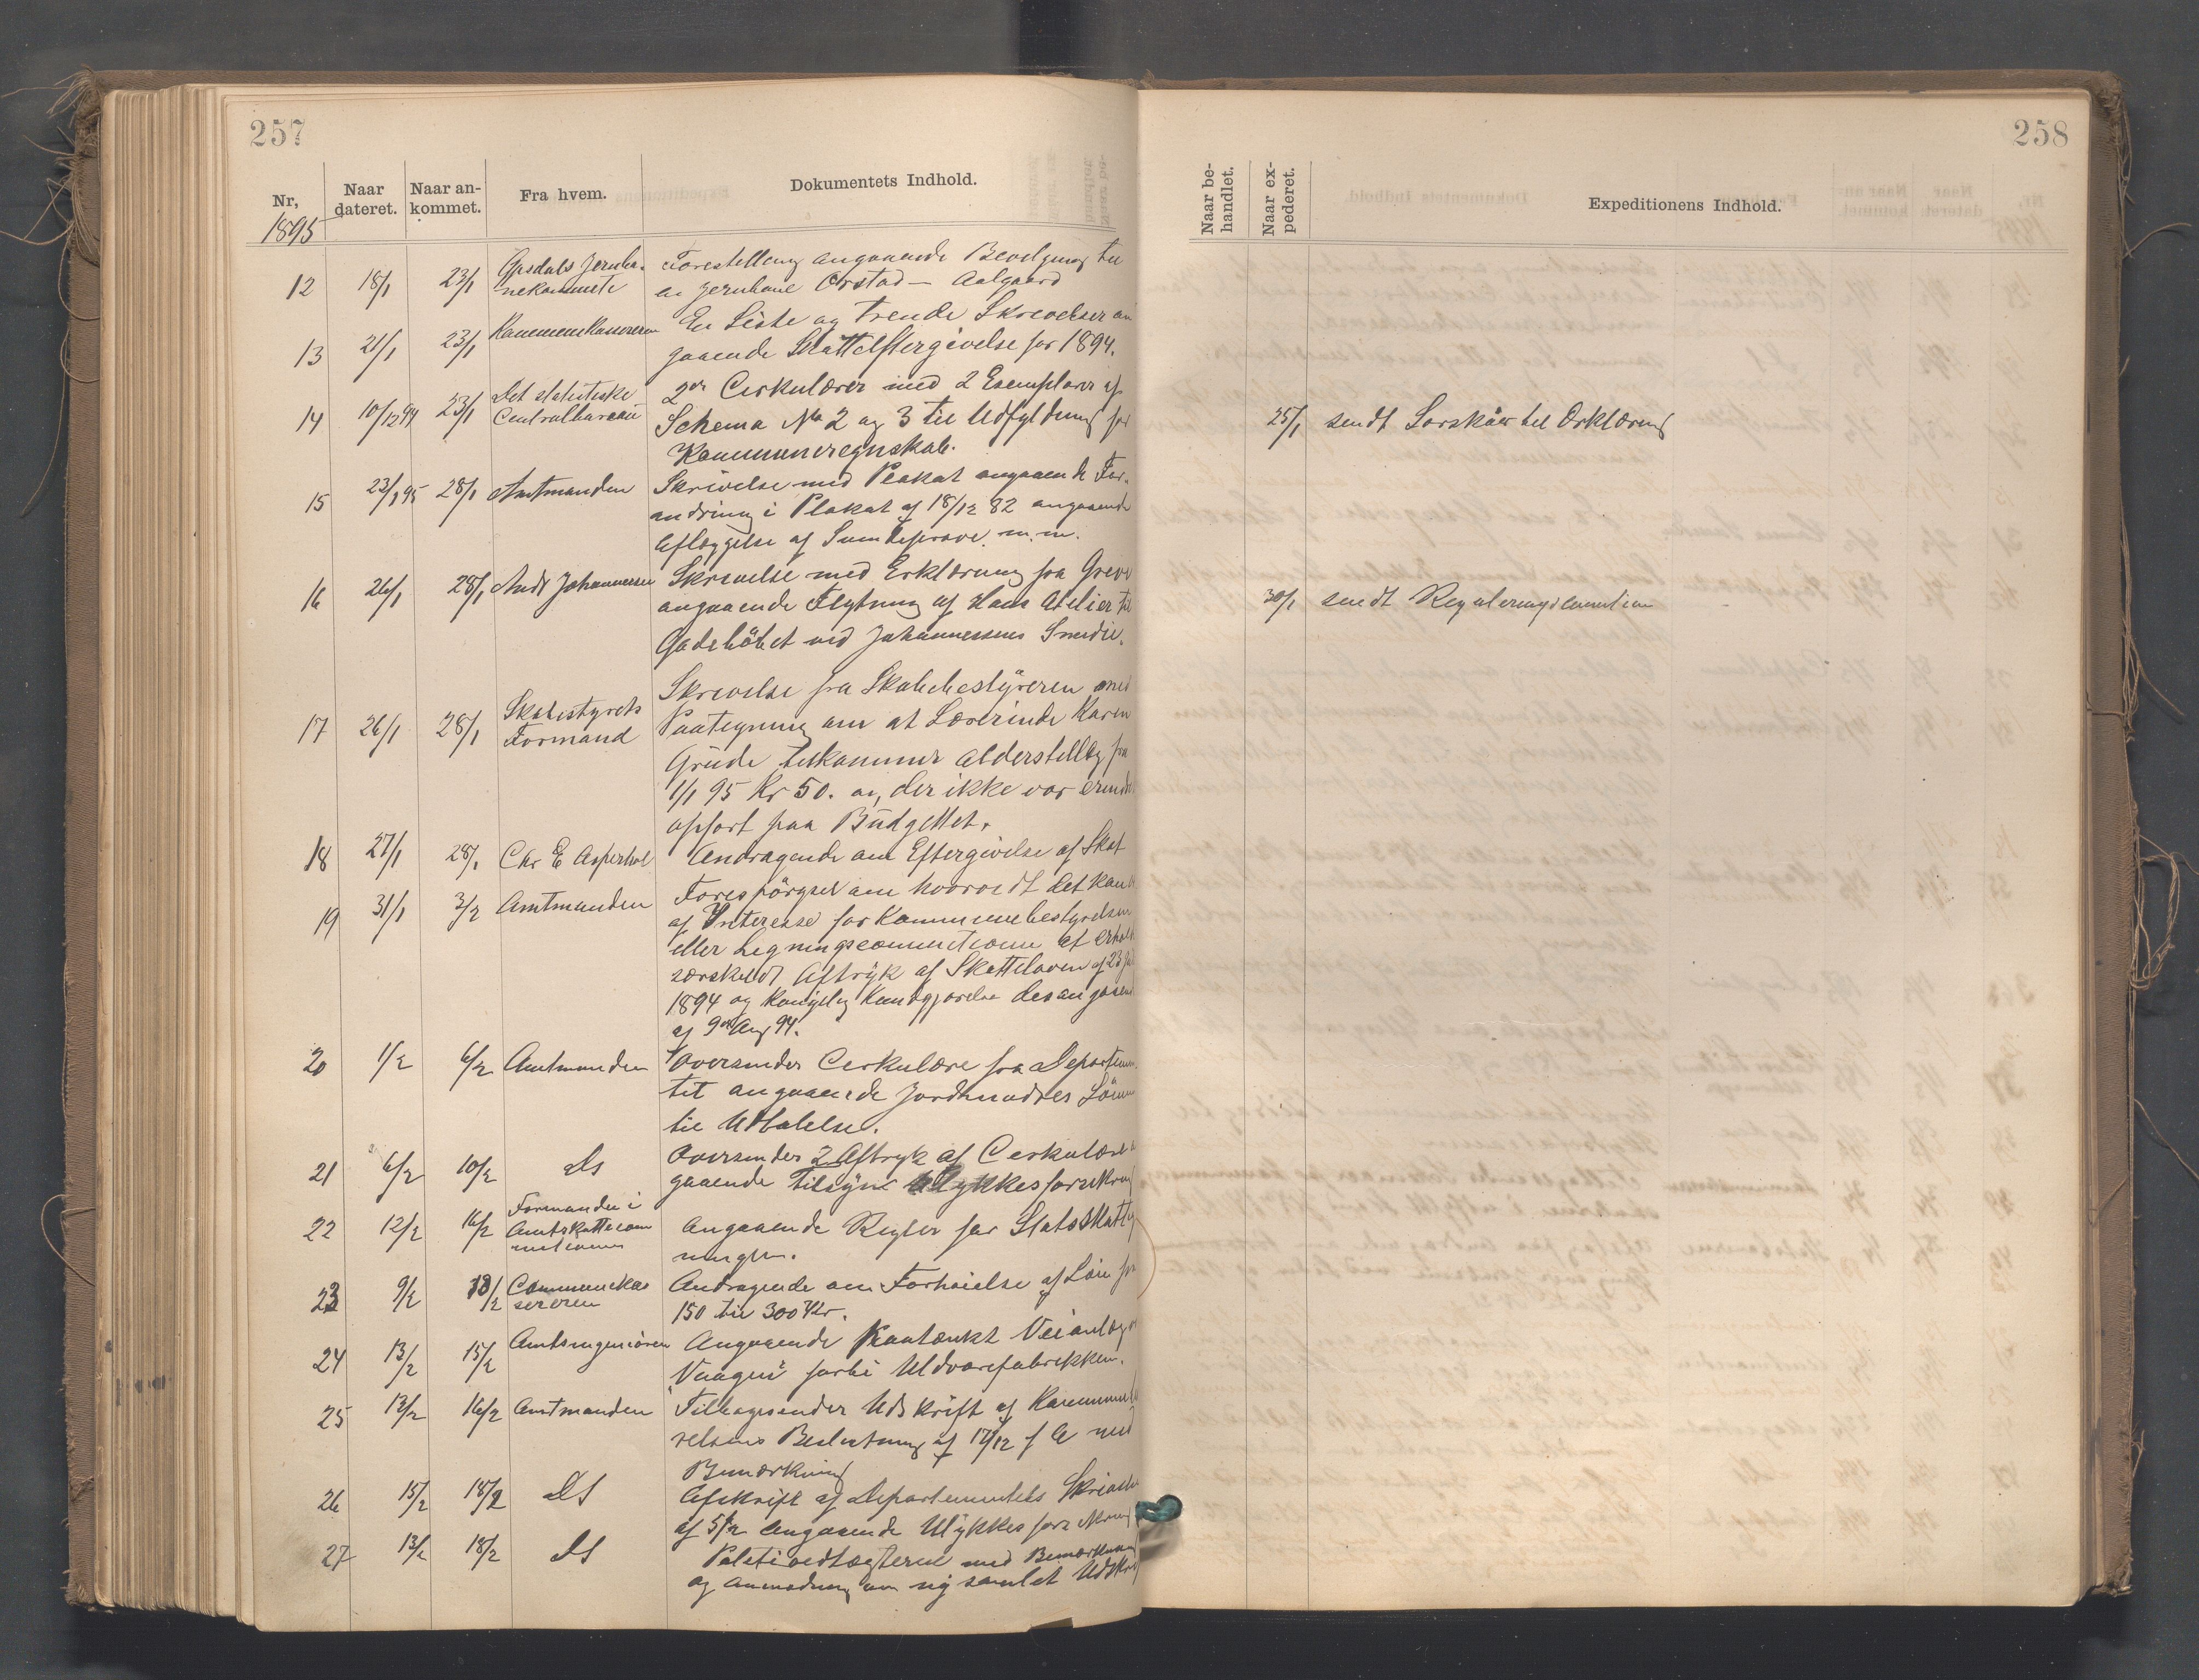 257
Nr,
Naar dateret.
Naar ankommet.
Fra hvem.
Dokumentets Indhold.
1895
12 18/1 23/1 Jernba-
nekommite
Forestilling angaaende Bevilgning til
en Jernbane Orstad — Aalgaard
13 21/1 23/1 Kommunekasseren
En Liste og trende Skrivelser an
gaaende Skatteeftergivelse for 1894.
14 10/12 94 23/1 Det statistiske
Centralbureau
2de Cirkulærer med 2 Exemplarer af
Schema No 2 og 3 til Udfyldning for
Kommuneregnskab.
15 23/1 95 28/1 Amtmanden
Skrivelse med Plakat angaaende For-
andring i Plakat af 18/12 82 angaaende
Aflæggelse af Svendeprøve m.m.
16 26/1 28/1 Johannessen
Skrivelse med Erklæring fra
angaaende Flytning af Hans Atelier til
ved Johannessens Smedie.
17 26/1 28/1 Skolestyrets
Formand
Skrivelse fra Skolebestyreren med
Paategning om at Lærerinde Karen
Grude tilkommer Alderstillæg fra
1/1 95 Kr 50. der ikke var
opført paa Budgettet.
18 27/1 28/1 Chr E
Andragende om Eftergivelse af Skat
19 31/1 3/2 Amtmanden
Forespörgsel om hvorvidt det kan
af Interesse for Kommunebestyrelsen
eller Ligningscommissionen at erhold
særskildt Aftryk af Skatteloven af
1894 og kongelig Kundgjørelse desangaaend
af 9de Aug 94.
20 1/2 6/2 Amtmanden
Oversender Cirkulære fra Departemen-
tet angaaende Jordmødres
til Udtalelse.
21 6/2 10/2 Ds
Oversender 2 Aftryk af Cirkulære
gaaende Tilsyn Ulykkesforsikring
22 12/2 16/2 Formanden i
Amtskattecom
missionen
Angaaende Regler for Statsskatte
ningen.
23 9/2 13/2 Communekas
sereren
Andragende om Forhøielse af Løn fra
150 til 300 Kr.
24 13/2 15/2 Amtsingeniøren
Angaaende Paatænkt Veianlæg
Vaagen forbi Uldvarefabrikken.
25 13/2 16/2 Amtmanden
Tilbagesender Udskrift af Kommunest
relsens Beslutning af 17/12 f A med
Bemærkning
26 15/2 18/2 Ds
Afskrift af Departementets Skrivelse
af 5/2 Angaaende Ulykkesforsikring
27 13/2 18/2 Ds
Politivedtægterne med Bemærkning
og Anmodning om ny samlet Udskrift
258
Naar behandlet.
Naar expederet.
Expeditionens Indhold.
25/1 sendt til Erklæring
30/1 sendt Reguleringscomission